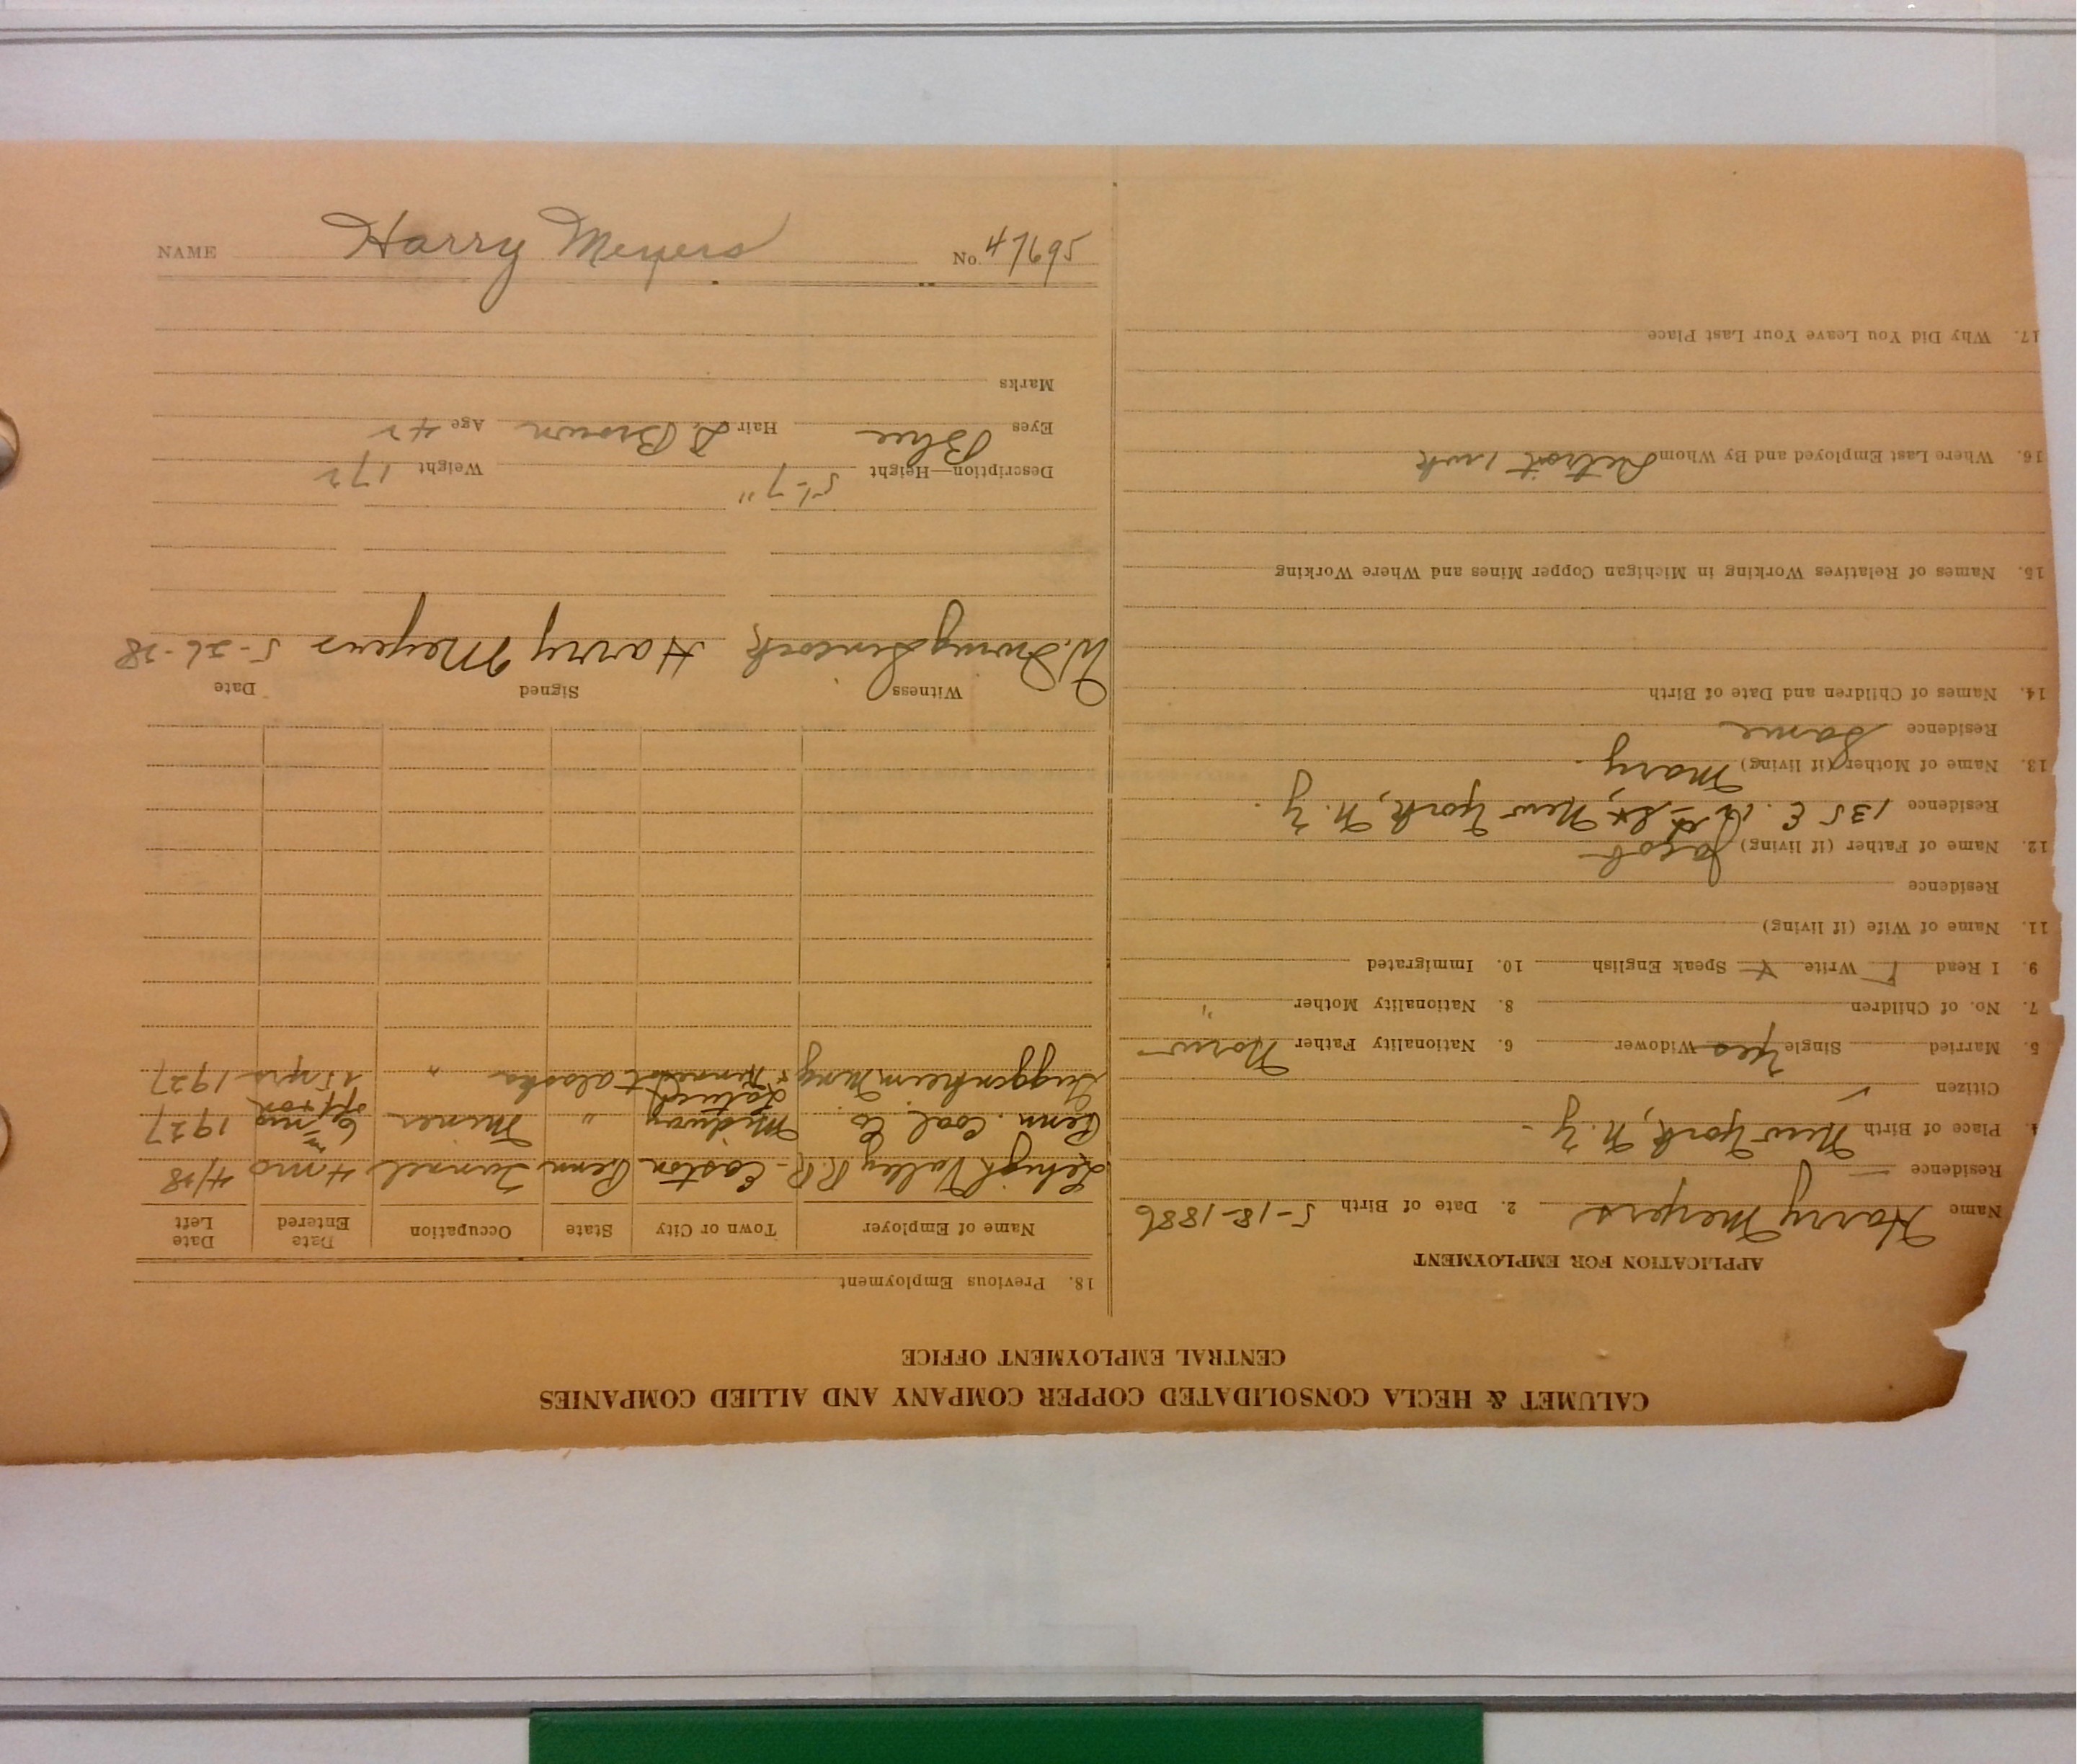 CALUMET & HECLA CONSOLIDATED COPPER COMPANY AND ALLIED COMPANIES
CENTRAL EMPLOYMENT OFFICE
APPLICATION FOR EMPLOYMENT
Name Harry Meyers 2. Date of Birth 5-18-1886
Residence
4. Place of Birth New York, N.Y.
Citizen ✓
5. Married Single Yes Widower 6. Nationality Father Norw
7. No. of Children 8. Nationality Mother "
9. I Read Write Speak English 10. Immigrated
11. Name of Wife (if living)
Residence
12. Name of Father (if living) Jacob
Residence 135 E. St, New York, N.Y.
13. Name of Mother (if living) Mary
Residence Same
14. Names of Children and Date of Birth
15. Names of Relatives Working in Michigan Copper Mines and Where Working
16. Where Last Employed and By Whom Detroit 1 wk
17. Why Did You Leave Your Last Place
18. Previous Employment
Name of Employer Town or City State Occupation Date Entered Date Left
Lehigh Valley R.R. Easton Penn Tunnel 4 mo 4/28
Penn. Coal Co. Midway " Miner 6 mo 1927
Guggenheim Mng Alaska " 15 yrs 1927
Witness Signed Date
W. Irving Harry Meyers 5-26-28
Description—Height 5'-7" Weight 172
Eyes Blue Hair D. Brown Age 42
Marks
NAME Harry Meyers No. 47695